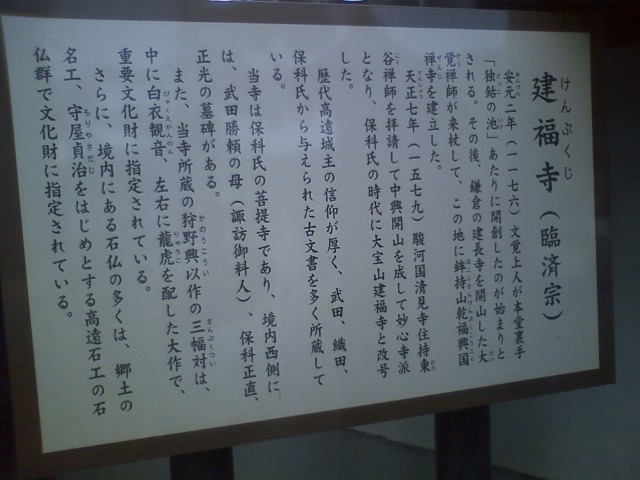 建福寺（臨済宗）
けんぷくじ
安元二年（一一七六）文覚上人が本堂裏手
「独鈷の池」あたりに開創したのが始まりと
される。その後、鎌倉の建長寺を開山した大
覚禅師が来杖して、この地に鉾持山乾福興国
禅寺を建立した。
天正七年（一五七九）駿河国清見寺住持東
谷禅師を拝請して中興開山を成して妙心寺派
となり、保科氏の時代に大宝山建福寺と改号
した。
歴代高遠城主の信仰が厚く、武田、織田、
保科氏から与えられた古文書を多く所蔵して
いる。
当寺は保科氏の菩提寺であり、境内西側に
は、武田勝頼の母（諏訪御料人）、保科正直、
正光の墓碑がある。
また、当寺所蔵の狩野興以作の三幅対は、
中に白衣観音、左右に龍虎を配した大作で、
重要文化財に指定されている。
さらに、境内にある石仏の多くは、郷土の
名工、守屋貞治をはじめとする高遠石工の石
仏群で文化財に指定されている。